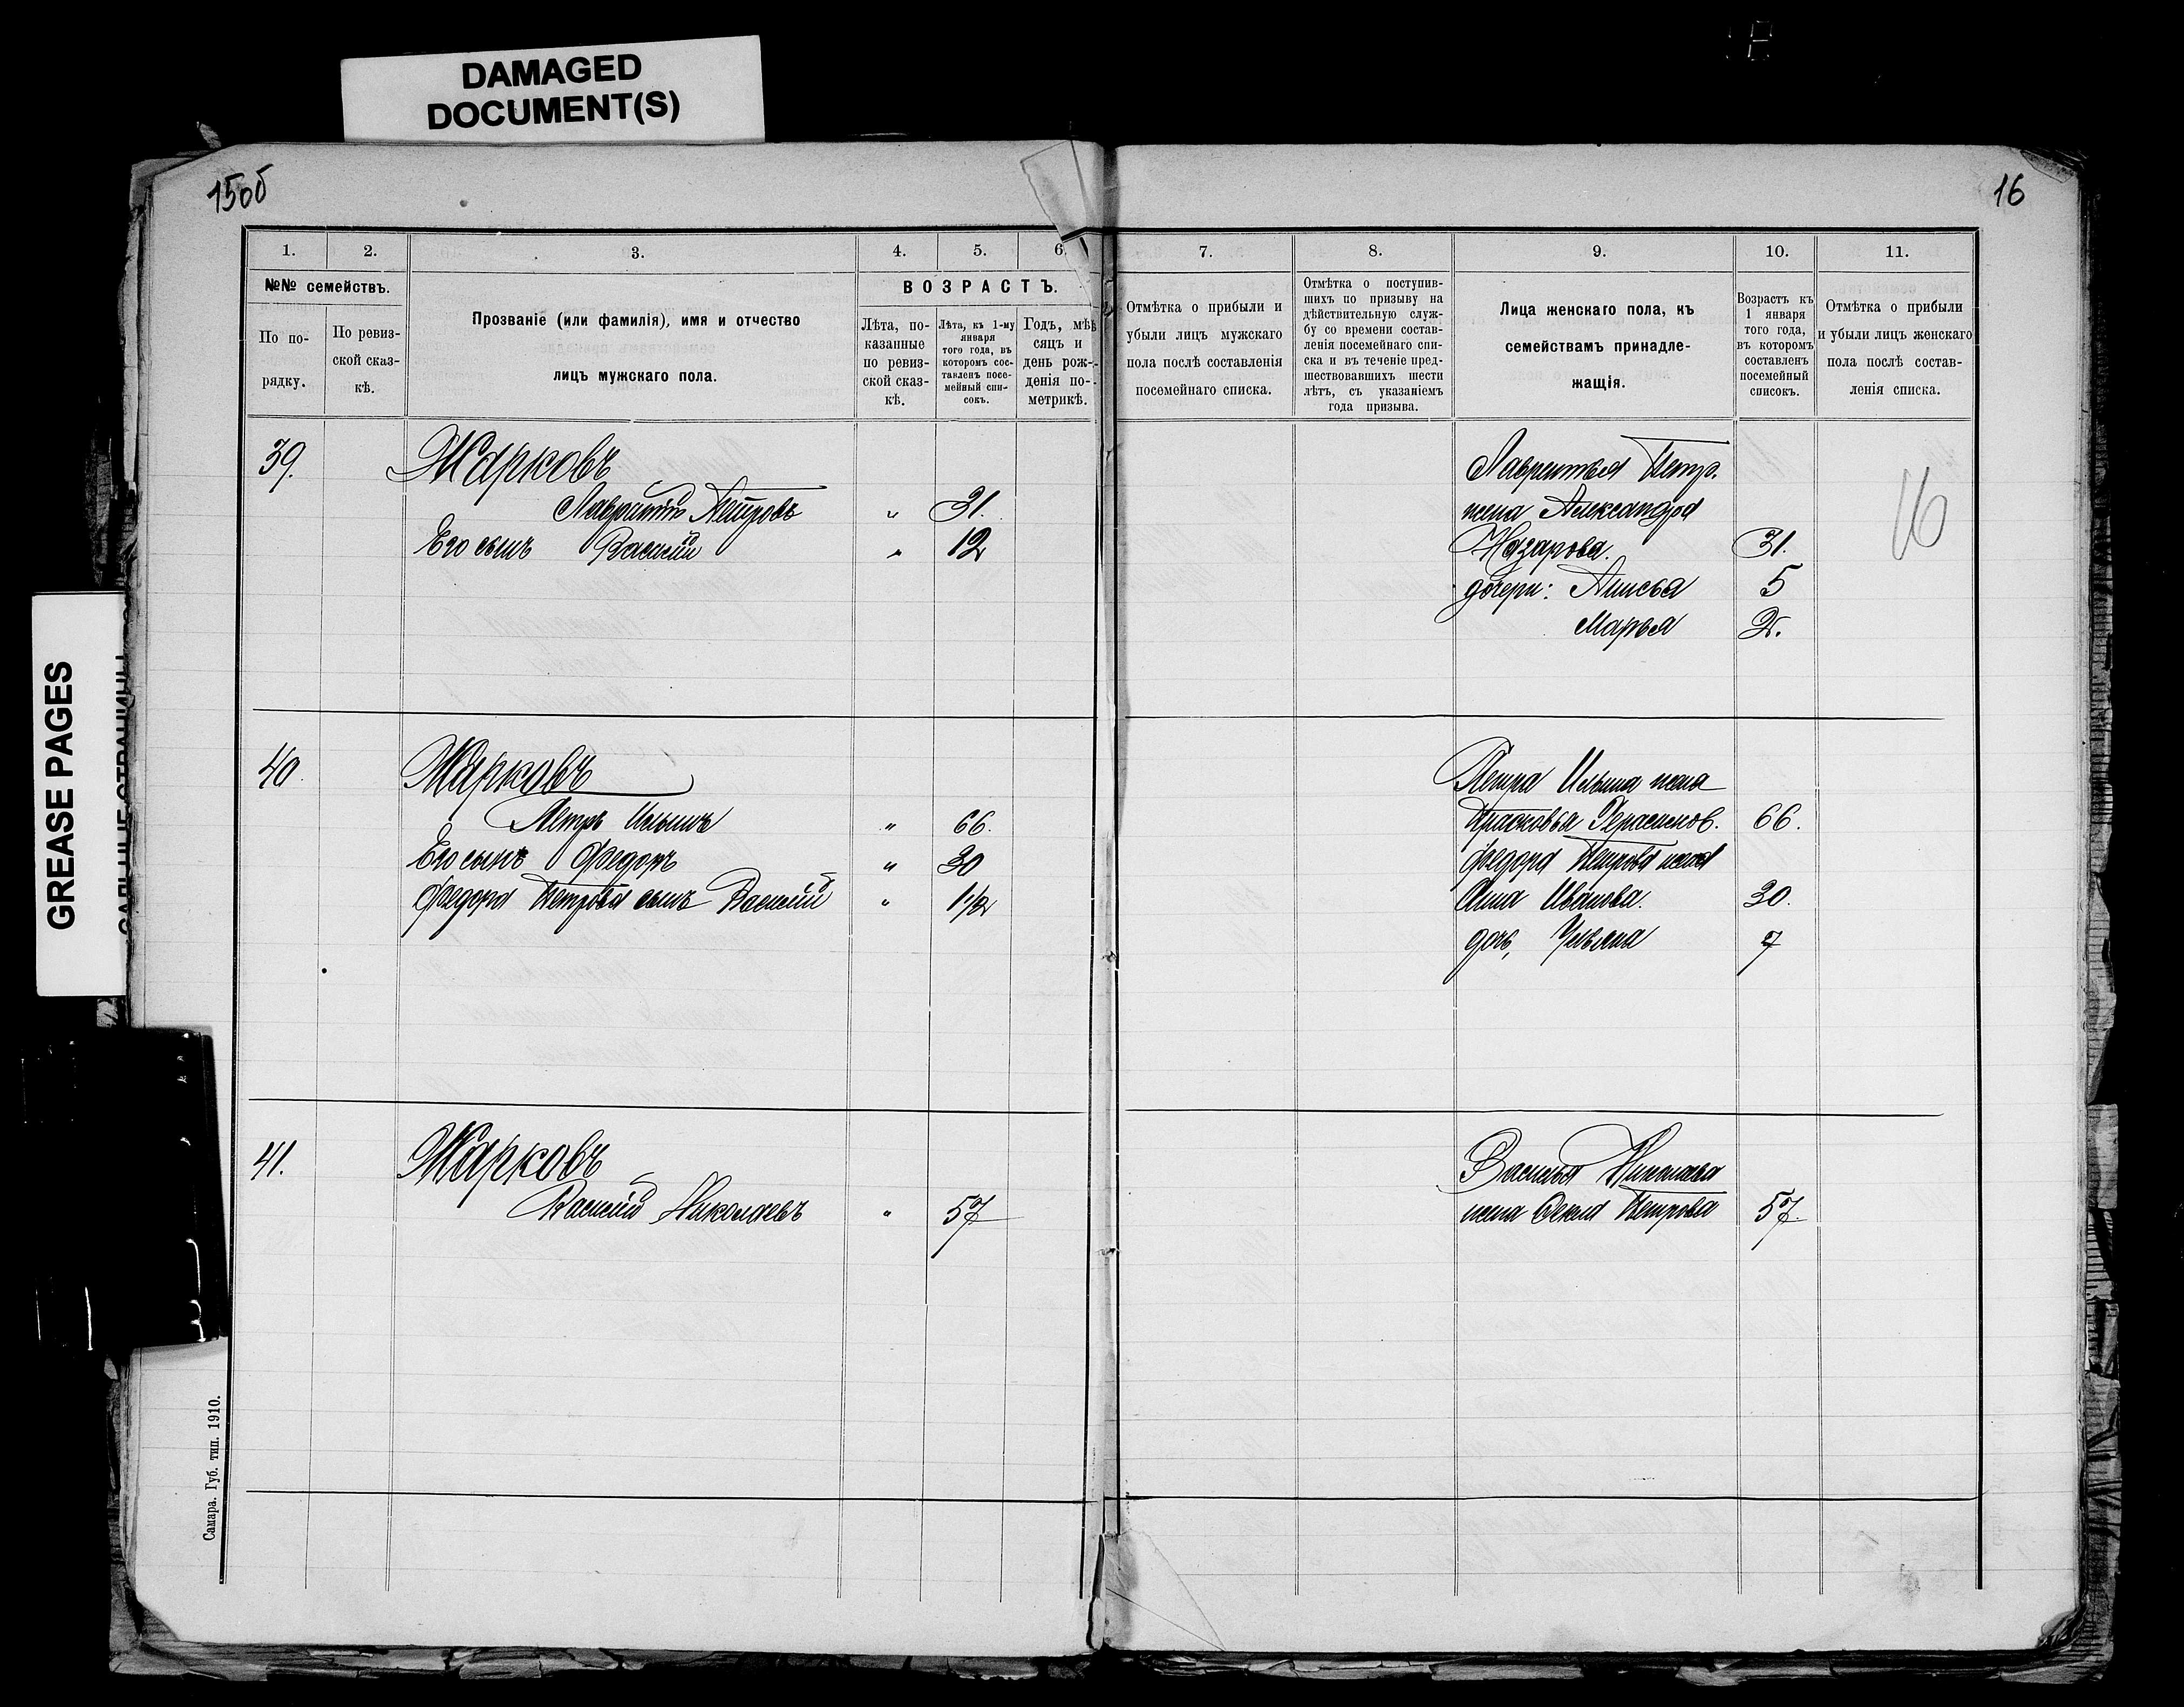 DAMAGED
DOCUMENT(S)
GREASE PAGES
15об
16
1.
2.
3.
4.
5.
6.
7.
8.
9.
10.
11.
№№ семействъ.
По по-
рядку.
По ревиз-
ской сказ-
кѣ.
Прозваніе (или фамилія), имя и отчество
лицъ мужскаго пола.
ВОЗРАСТЪ.
Лѣта, по-
казанные
по ревиз-
ской сказ-
кѣ.
Лѣта, къ 1-му
января
того года, въ
которомъ сос-
тавленъ посе-
мейный спи-
сокъ.
Годъ, мѣс
сяцъ и
день рож-
денія по-
метрикѣ.
Отмѣтка о прибыли и
убыли лицъ мужскаго
пола послѣ составленія
посемейнаго списка.
Отмѣтка о поступив-
шихъ по призыву на
дѣйствительную служ-
бу со времени состав-
ленія посемейнаго спи-
ска и въ теченіе пред-
шествовавшихъ шести
лѣтъ, съ указаніемъ
года призыва.
Лица женскаго пола, къ
семействамъ принадле-
жащія.
Возрастъ къ
1 января
того года,
въ которомъ
составленъ
посемейный
списокъ.
Отмѣтка о прибыли
и убыли лицъ женскаго
пола послѣ состав-
ленія списка.
39. Жарковъ
Лаврентій Петровъ " 31.
Его сынъ Василій " 12
Лаврентья Петр.
жена Александра
Назарова. 31.
дочери: Анисья 5
Марья 2.
16
40. Жарковъ
Петръ Ильинъ " 66.
Его сынъ Федоръ " 30
Федора Петрова сынъ Василій " 1 1/2
Петра Ильина жена
Прасковья Герасимов. 66.
Федора Петрова жена
Анна Иванова. 30.
дочь, Ульяна 7
41. Жарковъ
Василій Николаевъ " 57
Василья Николаева
жена Фекла Петрова 57.
Самара. Губ. тип. 1910.